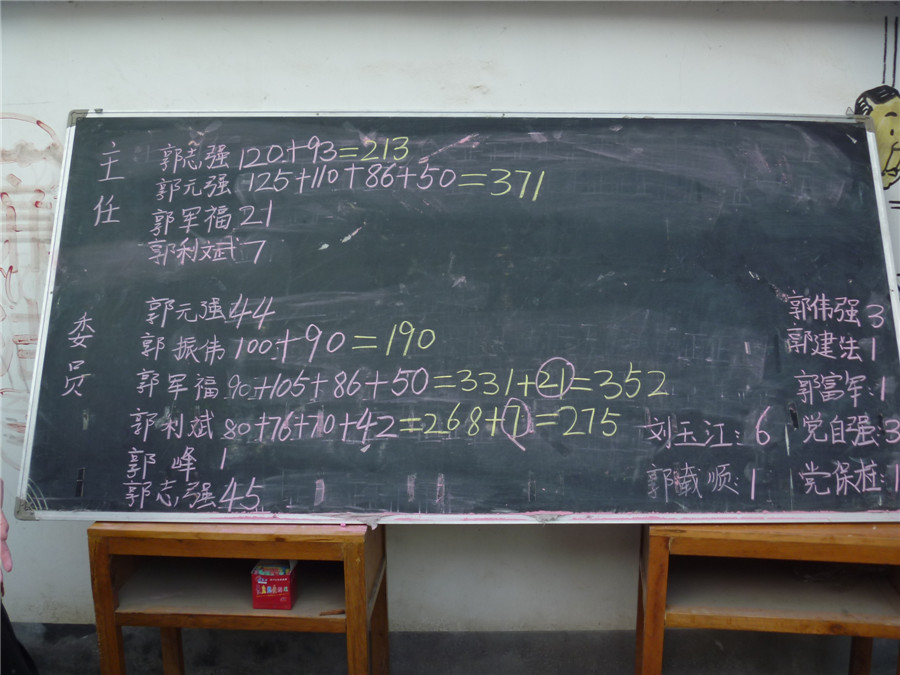 主任
郭志强 120+93=213
郭元强 125+110+86+50=371
郭军福 21
郭利斌 7
委员
郭元强 44
郭振伟 100+90=190
郭军福 90+105+86+50=331+21=352
郭利斌 80+76+70+42=268+7=275
郭峰 1
郭志强 45
郭伟强 3
郭建法 1
郭富军: 1
刘玉江: 6
党自强: 3
郭载顺: 1
党保柱: 1